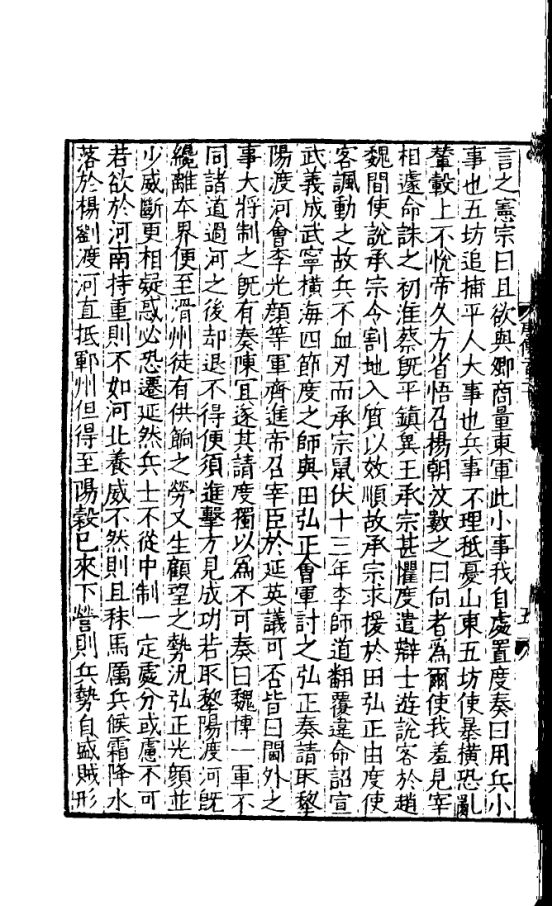 言之憲宗曰且欲與卿商量東軍此小事我自處置度奏曰用兵小
事也五坊追捕平人大事也兵事不理秪憂山東五坊使暴橫恐亂
輦轂上不悅帝久方省悟召楊朝汶數之曰向者爲爾使我羞見宰
相遽命誅之初淮蔡旣平鎮冀王承宗甚懼度遣辯士遊說客於趙
魏間使說承宗令割地入質以效順故承宗求援於田弘正由度使
客諷動之故兵不血刃而承宗鼠伏十三年李師道翻覆違命詔宣
武義成武寧橫海四節度之師與田弘正會軍討之弘正奏請取黎
陽渡河會李光顔等軍齊進帝召宰臣於延英議可否皆曰閫外之
事大將制之旣有奏陳宜遂其請度獨以爲不可奏曰魏博一軍不
同諸道過河之後却退不得便須進擊方見成功若取黎陽渡河旣
纔離本界便至滑州徒有供餉之勞又生顧望之勢況弘正光顔並
少威斷更相疑惑必恐遷延然兵士不從中制一定處分或慮不可
若欲於河南持重則不如河北養威不然則且秣馬厲兵候霜降水
落於楊劉渡河直抵鄆州但得至陽穀已來下營則兵勢自盛賊形